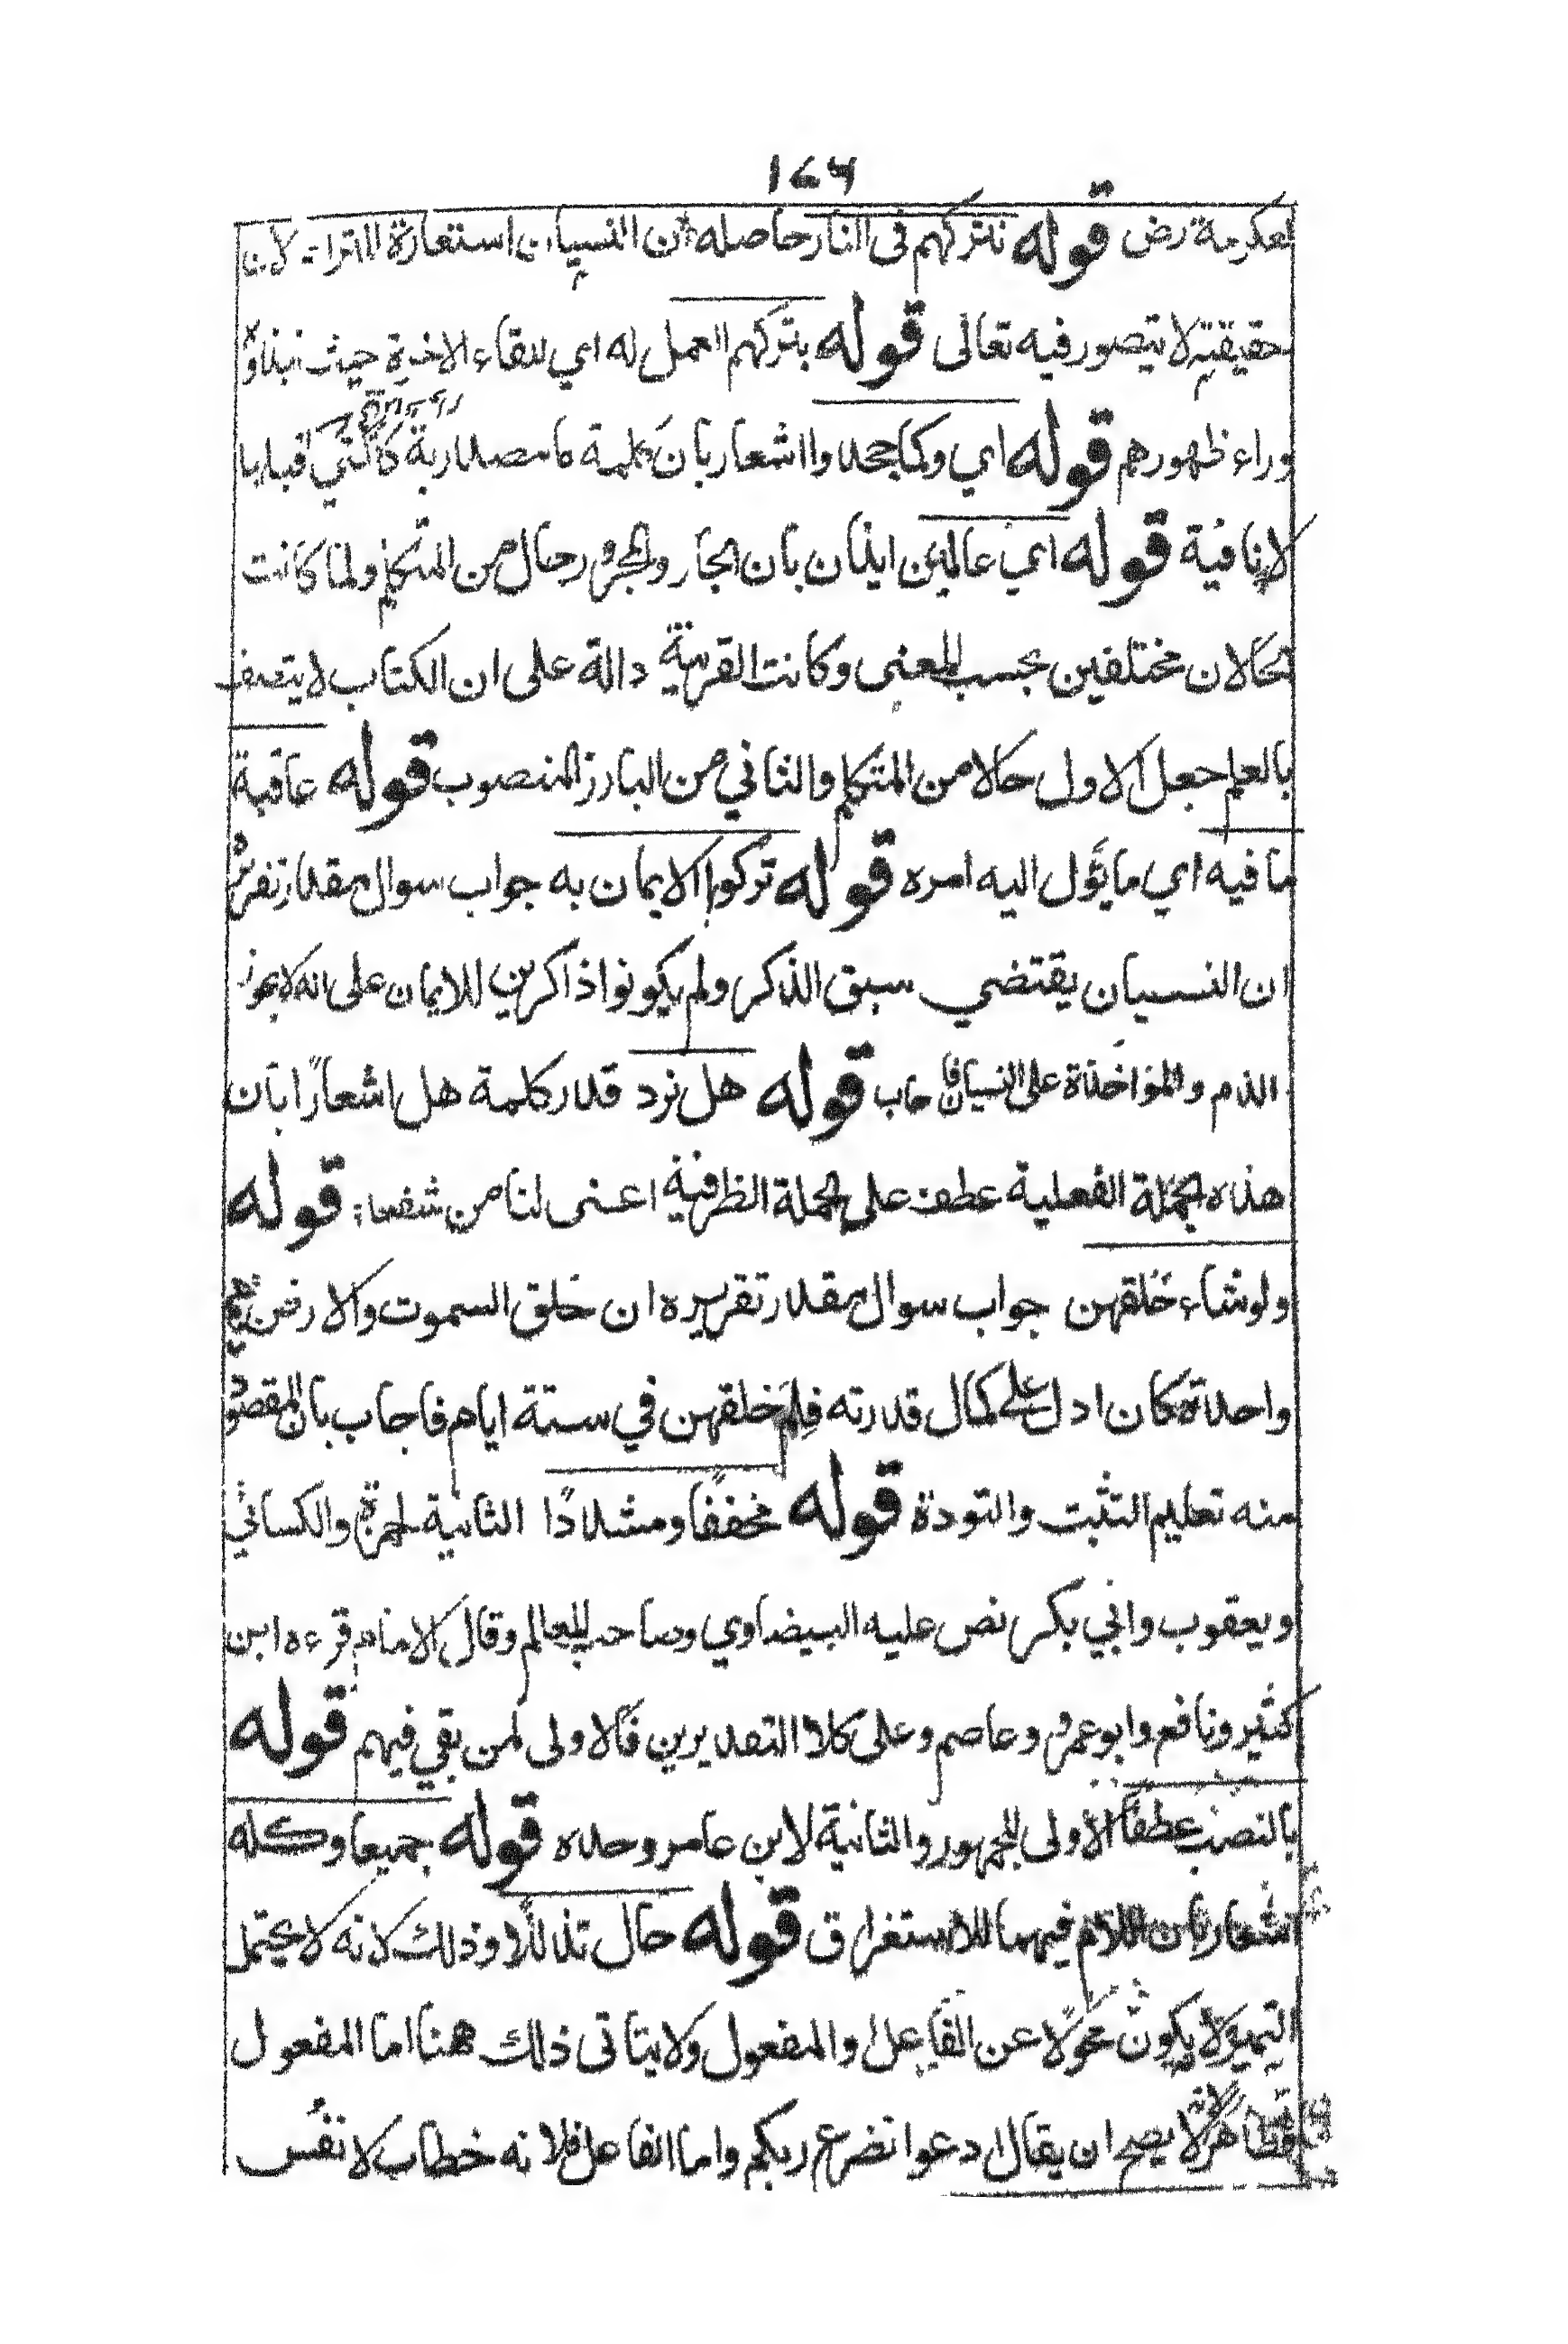 ١٤٦
لعكرمة رض قوله نتركهم فى النار حاصله ان النسيان استعارة للترك لان
حقيقته لا يتصور فيه تعالى قوله بتركهم العمل له اي للقاء الاخرة حيث نبذوه
وراء ظهورهم قوله اي وكما جحدوا اشعار بان كلمة ما مصدرية كالتي قبلها
لا نافية قوله اي عالمين ايذان بان الجار والمجرور حال من المتكلم ولما كانت
الحالان مختلفين بحسب المعنى وكانت القرينة دالة على ان الكتاب لا يتصف
بالعلم جعل الاول حالا من المتكلم والثاني من البارز المنصوب قوله عاقبة
ما فيه اي ما يؤل اليه امره قوله تركوا الايمان به جواب سوال مقدر تقريره
ان النسيان يقتضي سبق الذكر ولم يكونوا ذاكرين للايمان على انه لا يجوز
الذم والمؤاخذة على النسيان فاجاب قوله هل نرد قدر كلمة هل اشعارًا بان
هذه الجملة الفعلية عطف على الجملة الظرفية اعنى لنا من شفعاء قوله
ولو شاء خلقهن جواب سوال مقدر تقريره ان خلق السموت والارض
واحدة كان ادل على كمال قدرته فلم خلقهن في ستة ايام فاجاب بان المقصود
منه تعليم التثبت والتودة قوله مخففًا ومشددًا الثانية لحمزة والكسائي
ويعقوب وابي بكر نص عليه البيضاوي وصاحب المعالم وقال الامام قرءه ابن
كثير ونافع وابو عمرو وعاصم وعلى كلا التقديرين فالاولى لمن بقي فيهم قوله
بالنصب عطفًا الاولى للجمهور والثانية لابن عامر وحده قوله جميعا وكله
اشعار بان اللام فيهما للاستغراق قوله حال تذللا وذلك لانه لا يحتمل
التميز لا يكون محولا عن الفاعل والمفعول ولا يتاتى ذلك ههنا اما المفعول
فظاهر لا يصح ان يقال ادعوا تضرع ربكم واما الفاعل فلانه خطاب لا نفس